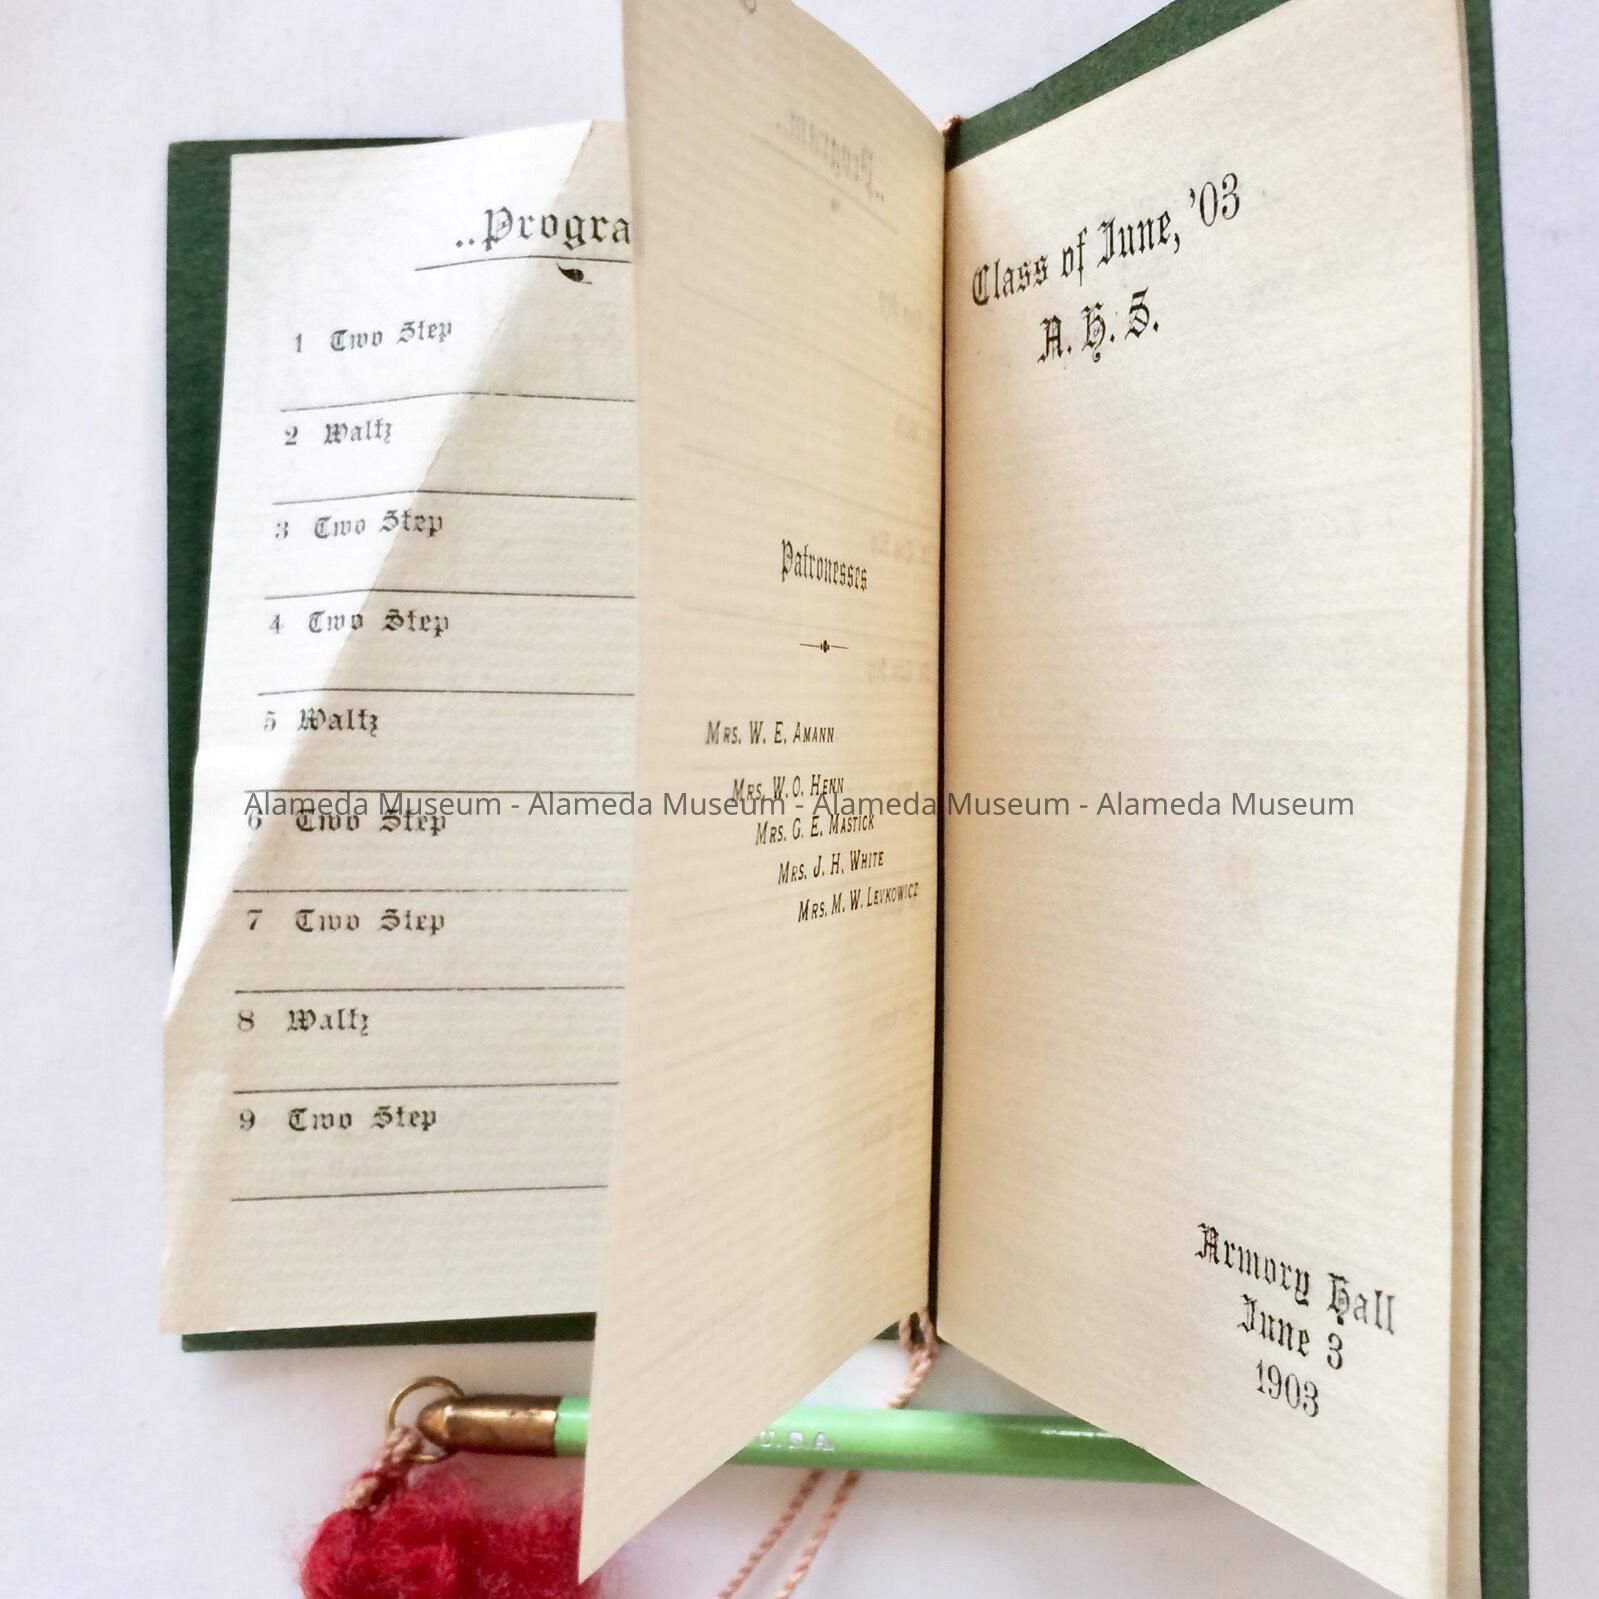 ..Progra
1 Two Step
2 Waltz
3 Two Step
4 Two Step
5 Waltz
6 Two Step
7 Two Step
8 Waltz
9 Two Step
Patronesses
Mrs. W. E. Amann
Mrs. W. O. Henn
Mrs. G. E. Mastick
Mrs. J. H. White
Mrs. M. W. Levkowicz
Class of June, '03
A. H. S.
Armory Hall
June 3
1903
Alameda Museum - Alameda Museum - Alameda Museum - Alameda Museum
U.S.A.